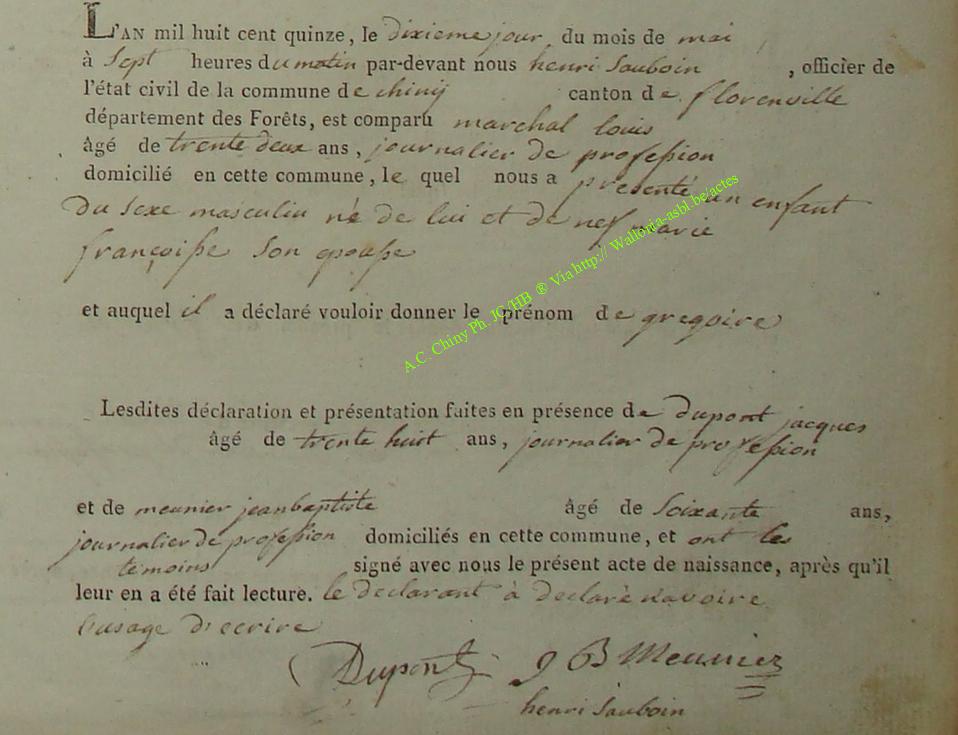 L'AN mil huit cent quinze, le dixieme jour du mois de mai
à sept heures du matin par-devant nous henri Sauboin, officier de
l'état civil de la commune de chiny canton de florenville
département des Forêts, est comparu marchal louis
âgé de trente deux ans, journalier de profession
domicilié en cette commune, le quel nous a presenté un enfant
du sexe masculin né de lui et de nef marie
françoisse son epousse
et auquel il a déclaré vouloir donner le prénom de gregoire
Lesdites déclaration et présentation faites en présence de dupont jacques
âgé de trente huit ans, journalier de profession
et de meunier jeanbaptiste âgé de soixante ans,
journalier de profession domiciliés en cette commune, et ont les
temoins signé avec nous le présent acte de naissance, après qu'il
leur en a été fait lecture. le declarant à declaré navoire
lusage decrire
Dupont J B Meunier
henri Sauboin
A.C. Chiny Ph. JC/HB ® Via http:// Wallonia-asbl.be/actes